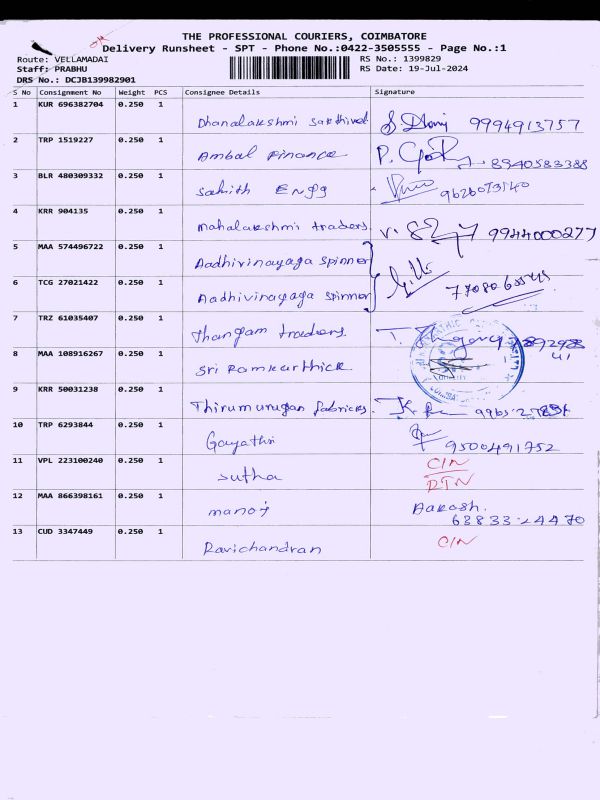 THE PROFESSIONAL COURIERS, COIMBATORE
Delivery Runsheet - SPT - Phone No.:0422-3505555 - Page No.:1
Route: VELLAMADAI RS No.: 1399829
Staff: PRABHU RS Date: 19-Jul-2024
DRS No.: DCJB139982901
S No Consignment No Weight PCS Consignee Details Signature
1 KUR 696382704 0.250 1 Dhanalakshmi Sakthivel 9994913757
2 TRP 1519227 0.250 1 Ambal Finance P. 8940583388
3 BLR 480309332 0.250 1 Sakith Engg 9626073140
4 KRR 904135 0.250 1 Mahalakshmi traders 9944000277
5 MAA 574496722 0.250 1 Aadhivinayaga spinner
6 TCG 27021422 0.250 1 Aadhivinayaga spinner
7 TRZ 61035407 0.250 1 Thangam traders
8 MAA 108916267 0.250 1 Sri Ramkarthick
9 KRR 50031238 0.250 1 Thirumurugan fabrices.
10 TRP 6293844 0.250 1 Gayathri 9500491752
11 VPL 223100240 0.250 1 Sutha C/N
RTN
12 MAA 866398161 0.250 1 manoj Aakash.
63833 24470
13 CUD 3347449 0.250 1 Ravichandran C/N